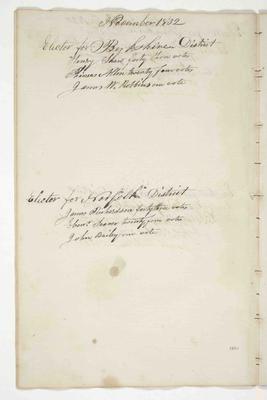 November 1832
Elector for Berkshire District
Henry Shaw forty five votes
Thomas Allen twenty four votes
James W. Robbins one vote
Elector for Norfolk District
James Richardson forty three votes
Ebenr Seaver twenty five votes
John Bailey one vote